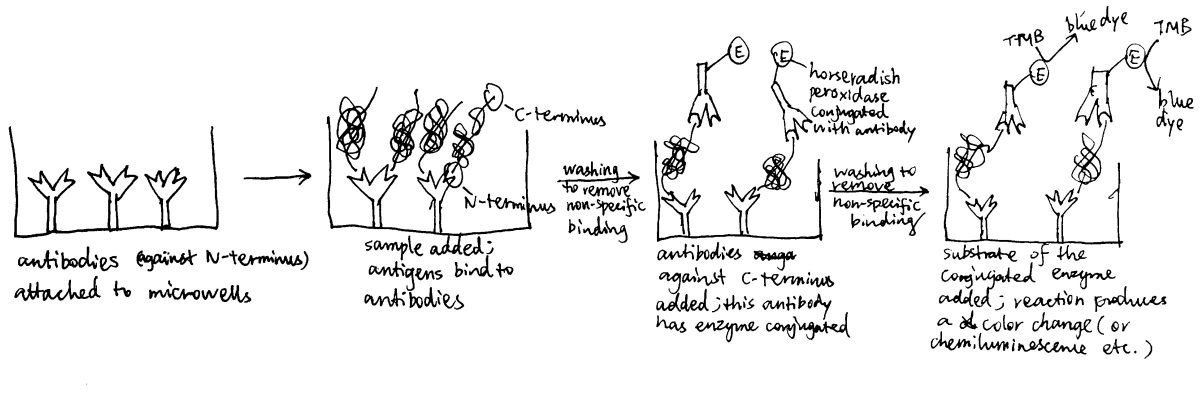 antibodies (against N-terminus)
attached to microwells
C-terminus
N-terminus
sample added;
antigens bind to
antibodies
washing
to remove
non-specific
binding
E
E
horseradish
peroxidase
conjugated
with antibody
antibodies
against C-terminus
added; this antibody
has enzyme conjugated
washing to
remove
non-specific
binding
TMB
blue dye
E
TMB
E
blue
dye
substrate of the
conjugated enzyme
added; reaction produces
a color change (or
chemiluminescence etc.)